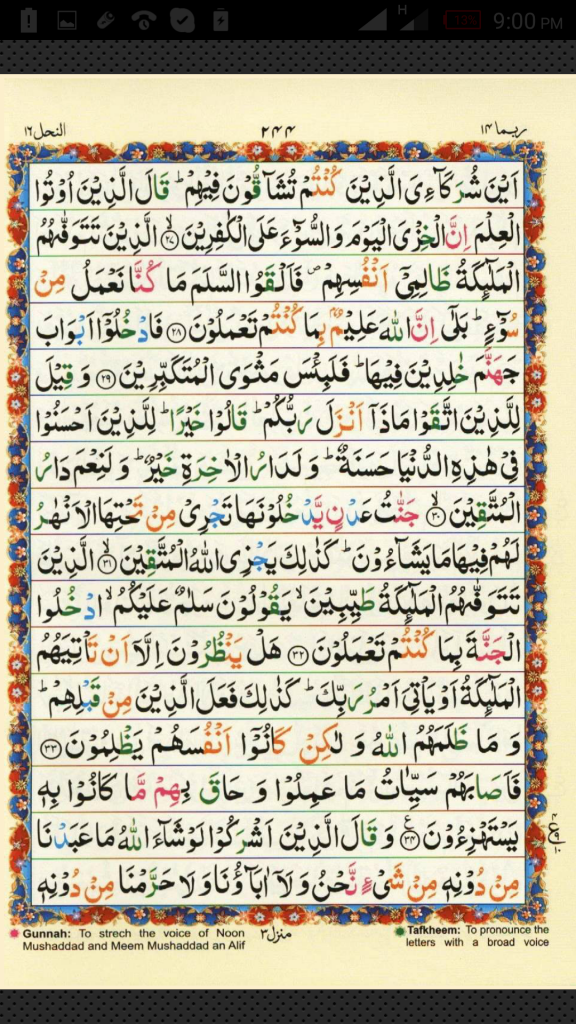 H
13%
9:00 PM
النحل ١٦
٢٤٤
ربما ١٤
اَیْنَ شُرَكَآءِیَ الَّذِیْنَ كُنْتُمْ تُشَآقُّوْنَ فِیْهِمْ ؕ قَالَ الَّذِیْنَ اُوْتُوا
الْعِلْمَ اِنَّ الْخِزْیَ الْیَوْمَ وَ السُّوْٓءَ عَلَی الْكٰفِرِیْنَ ۙ﴿۲۷﴾ الَّذِیْنَ تَتَوَفّٰىهُمُ
الْمَلٰٓىِٕكَةُ ظَالِمِیْۤ اَنْفُسِهِمْ ۪ فَاَلْقَوُا السَّلَمَ مَا كُنَّا نَعْمَلُ مِنْ
سُوْٓءٍ ؕ بَلٰۤی اِنَّ اللّٰهَ عَلِیْمٌۢ بِمَا كُنْتُمْ تَعْمَلُوْنَ ﴿۲۸﴾ فَادْخُلُوْۤا اَبْوَابَ
جَهَنَّمَ خٰلِدِیْنَ فِیْهَا ؕ فَلَبِئْسَ مَثْوَی الْمُتَكَبِّرِیْنَ ﴿۲۹﴾ وَ قِیْلَ
لِلَّذِیْنَ اتَّقَوْا مَاذَاۤ اَنْزَلَ رَبُّكُمْ ؕ قَالُوْا خَیْرًا ؕ لِلَّذِیْنَ اَحْسَنُوْا
فِیْ هٰذِهِ الدُّنْیَا حَسَنَةٌ ؕ وَ لَدَارُ الْاٰخِرَةِ خَیْرٌ ؕ وَ لَنِعْمَ دَارُ
الْمُتَّقِیْنَ ۙ﴿۳۰﴾ جَنّٰتُ عَدْنٍ یَّدْخُلُوْنَهَا تَجْرِیْ مِنْ تَحْتِهَا الْاَنْهٰرُ
لَهُمْ فِیْهَا مَا یَشَآءُوْنَ ؕ كَذٰلِكَ یَجْزِی اللّٰهُ الْمُتَّقِیْنَ ۙ﴿۳۱﴾ الَّذِیْنَ
تَتَوَفّٰىهُمُ الْمَلٰٓىِٕكَةُ طَیِّبِیْنَ ۙ یَقُوْلُوْنَ سَلٰمٌ عَلَیْكُمُ ۙ ادْخُلُوا
الْجَنَّةَ بِمَا كُنْتُمْ تَعْمَلُوْنَ ﴿۳۲﴾ هَلْ یَنْظُرُوْنَ اِلَّاۤ اَنْ تَاْتِیَهُمُ
الْمَلٰٓىِٕكَةُ اَوْ یَاْتِیَ اَمْرُ رَبِّكَ ؕ كَذٰلِكَ فَعَلَ الَّذِیْنَ مِنْ قَبْلِهِمْ ؕ
وَ مَا ظَلَمَهُمُ اللّٰهُ وَ لٰكِنْ كَانُوْۤا اَنْفُسَهُمْ یَظْلِمُوْنَ ﴿۳۳﴾
فَاَصَابَهُمْ سَیِّاٰتُ مَا عَمِلُوْا وَ حَاقَ بِهِمْ مَّا كَانُوْا بِهٖ
یَسْتَهْزِءُوْنَ ۠﴿۳۴﴾ وَ قَالَ الَّذِیْنَ اَشْرَكُوْا لَوْ شَآءَ اللّٰهُ مَا عَبَدْنَا
مِنْ دُوْنِهٖ مِنْ شَیْءٍ نَّحْنُ وَ لَاۤ اٰبَآؤُنَا وَ لَا حَرَّمْنَا مِنْ دُوْنِهٖ
Gunnah: To strech the voice of Noon
Mushaddad and Meem Mushaddad an Alif
منزل ٣
Tafkheem: To pronounce the
letters with a broad voice